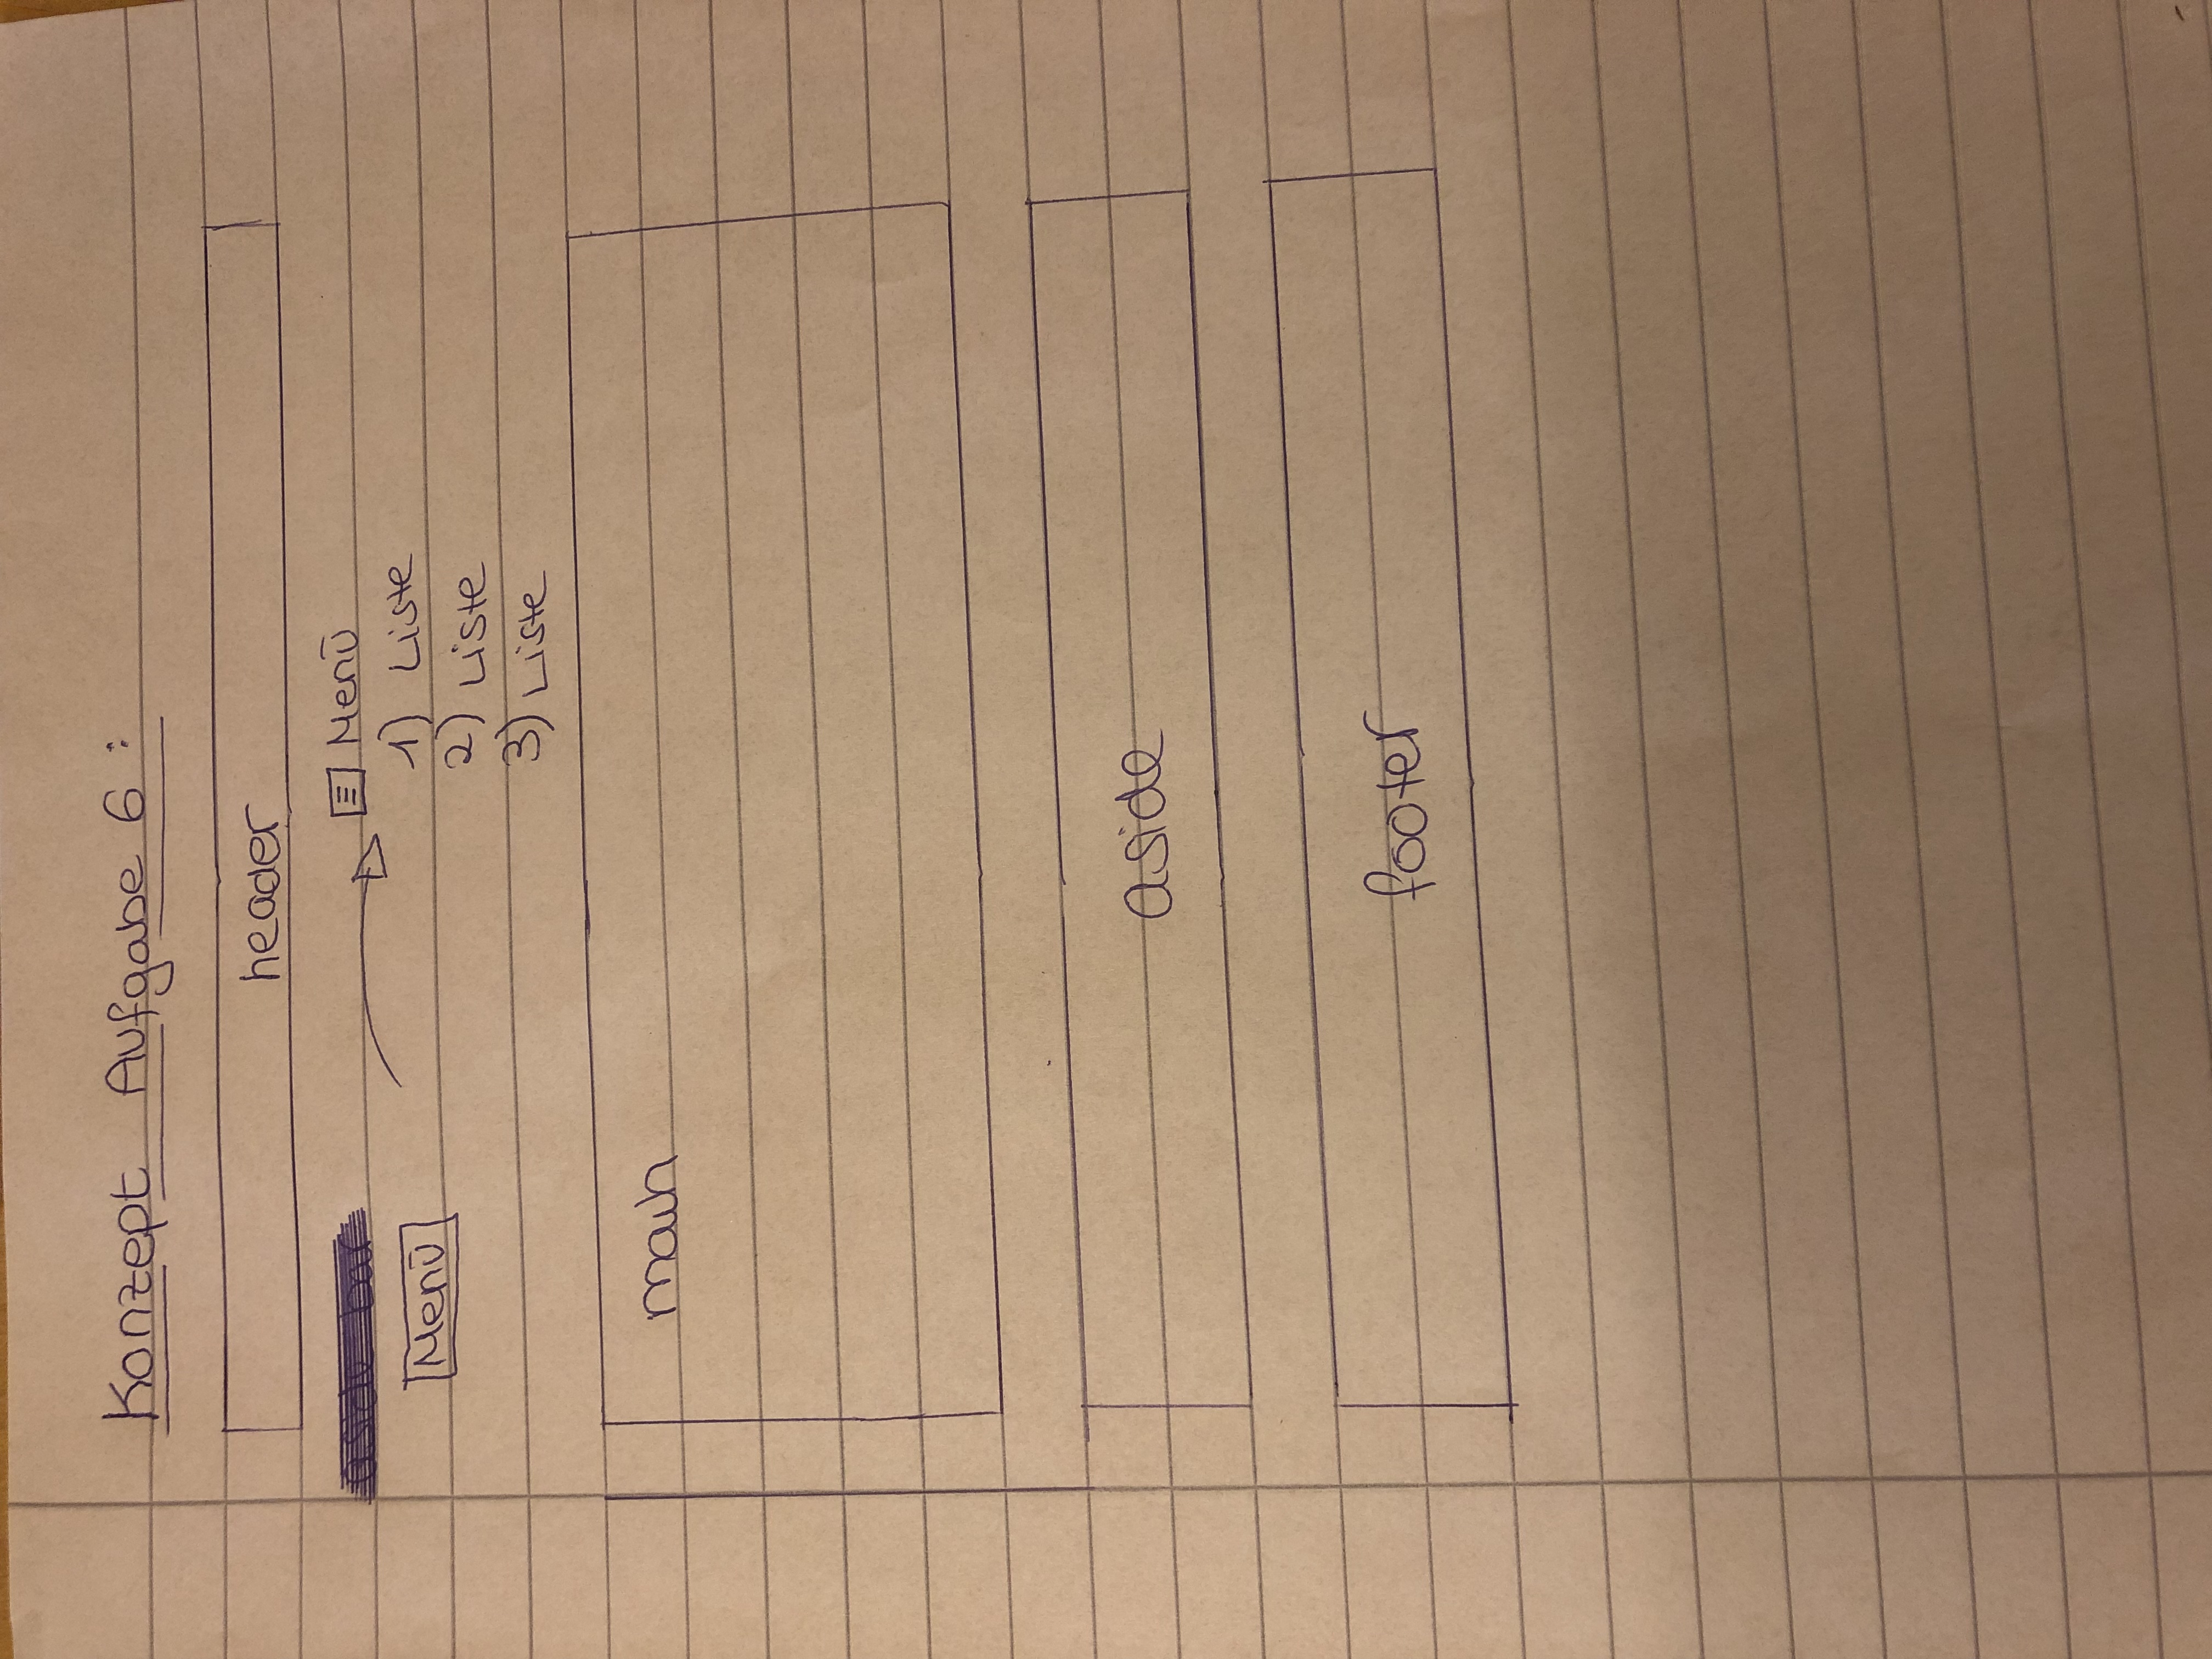 Konzept Aufgabe 6:
header
aside bar
Menü
Menü
1) Liste
2) Liste
3) Liste
main
aside
footer